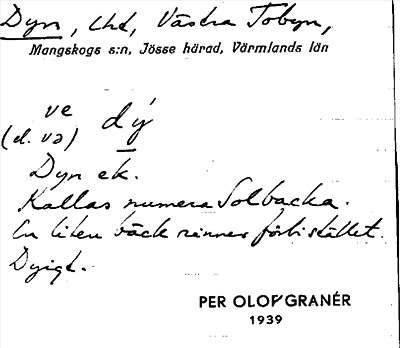 Dyn, Uhd, Västra Tobyn,
Mangskogs s:n, Jösse härad, Värmlands län
ve dý
(el. və)
Dyn ek.
Kallas numera Solbacka.
En liten bäck rinner förbi stället.
Dyigt.
PER OLOF GRANÉR
1939